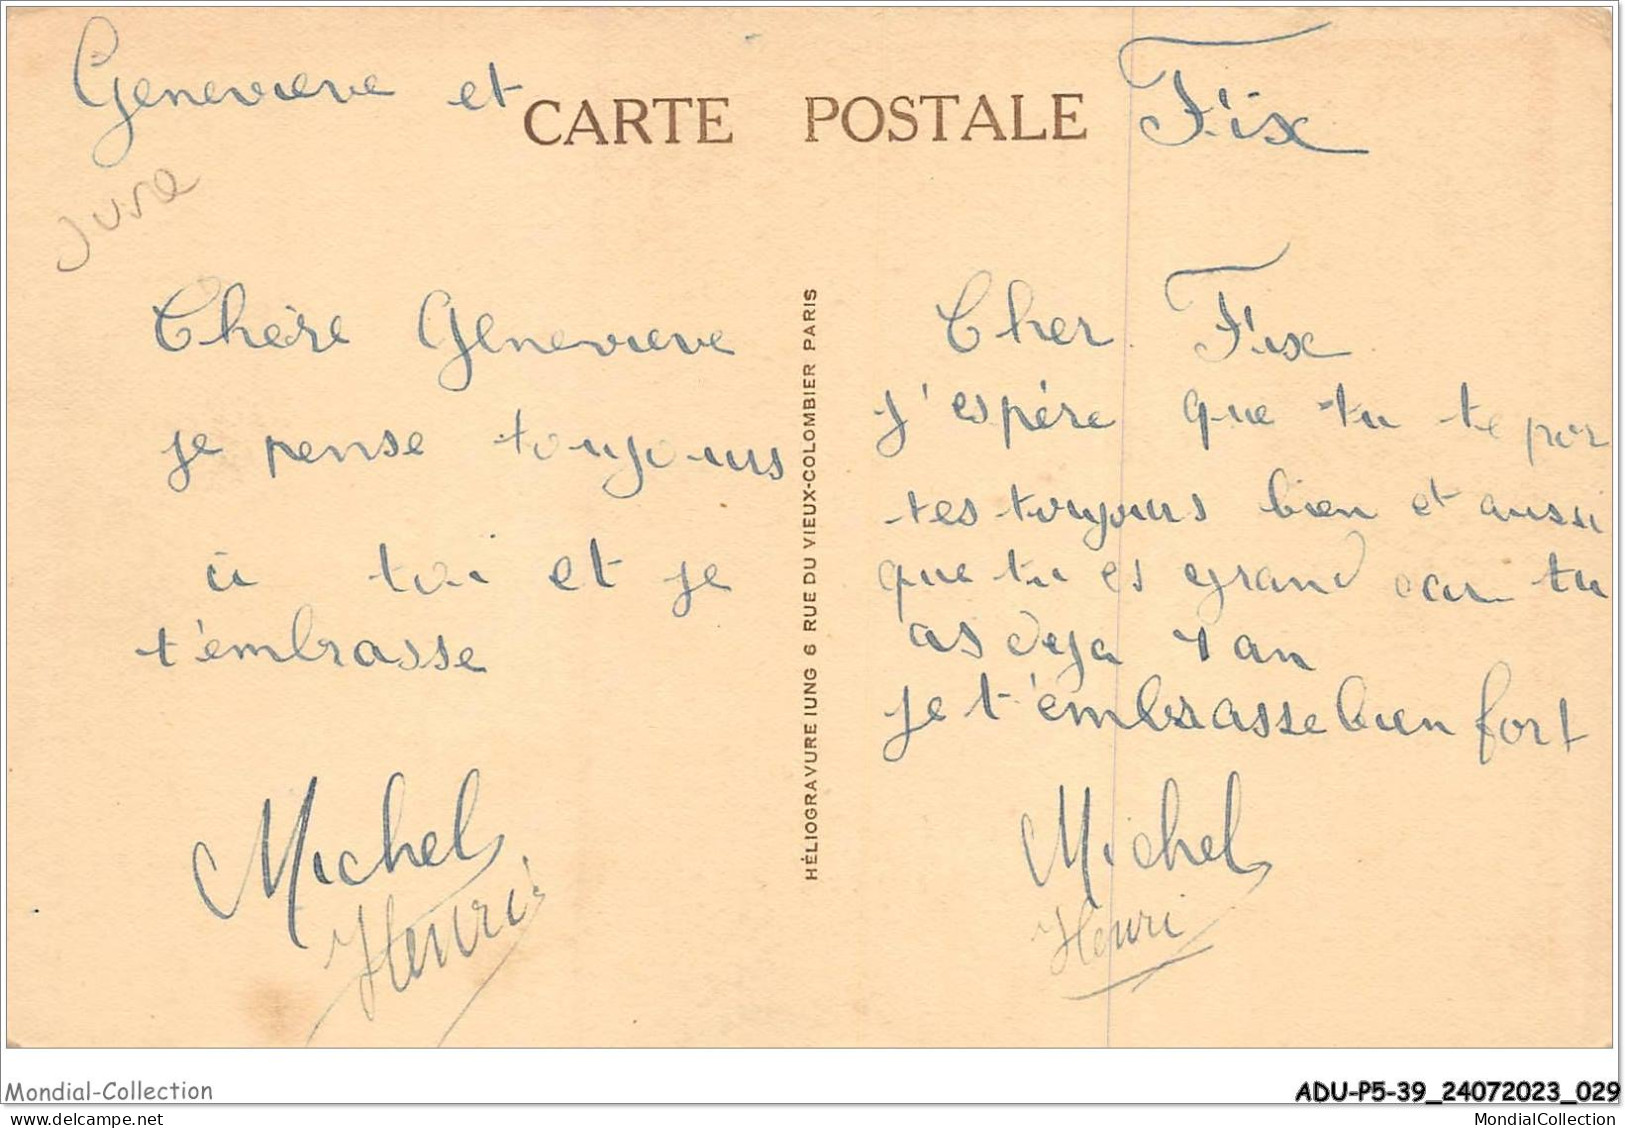 Genevieve et
CARTE POSTALE
Fix
Jura
Chère Genevieve
je pense toujours
à toi et je
t'embrasse
Michel
Henri
HÉLIOGRAVURE IUNG 6 RUE DU VIEUX-COLOMBIER PARIS
Cher Fix
j'espère que tu te por
tes toujours bien et aussi
que tu es grand car tu
as deja 1 an
je t'embrasse bien fort
Michel
Henri
Mondial-Collection
ADU-P5-39_24072023_029
www.delcampe.net
MondialCollection